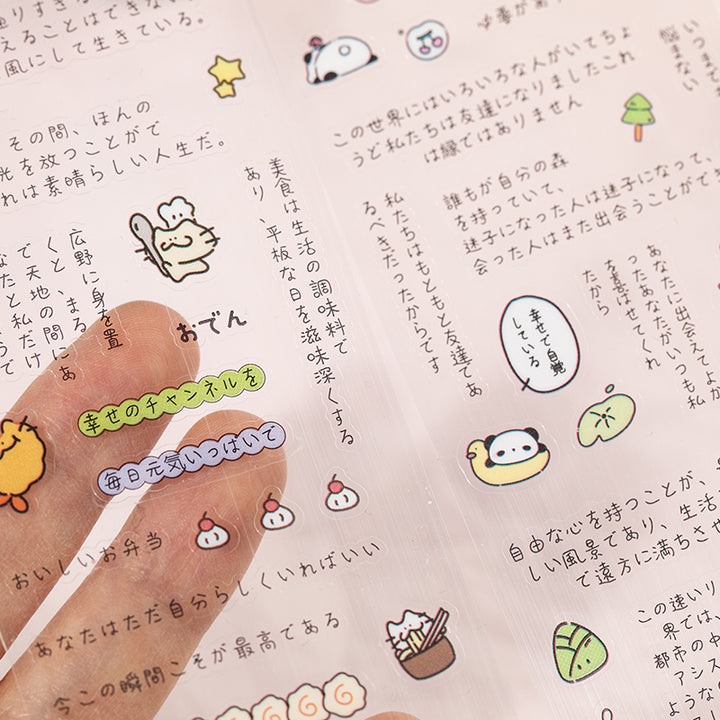 えることはできない
風にして生きている。
その間、ほんの
光を放つことがで
れは素晴らしい人生だ。
美食は生活の調味料で
あり、平板な日を滋味深くする
広野に身を置
くと、まるで
天地の間にあ
おでん
幸せのチャンネルを
毎日元気いっぱいで
おいしいお弁当
あなたはただ自分らしくいればいい
今この瞬間こそが最高である
この世界にはいろいろな人がいてちょ
うど私たちは友達になりましたこれ
は縁ではありません
いつまで
悩まない
誰もが自分の森
を持っていて、
迷子になった人は迷子になって、
会った人はまた出会うことができ
私たちはもともと友達であ
るべきだったからです
あなたに出会えてよか
ったあなたがいつも私
を喜ばせてくれ
たから
幸せで自覚
している
自由な心を持つことが、
しい風景であり、生活
で遠方に満ちさせ
この速いリ
界では、
都市の中
アシス
ような